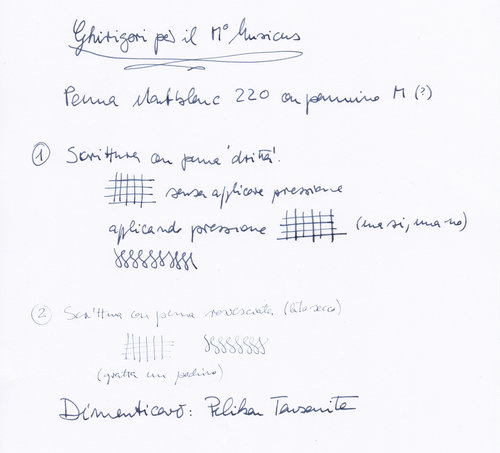 Ghirigori per il M° Musicus
Penna Montblanc 220 con pennino M (?)
1 Scrittura con penna 'dritta'.
senza applicare pressione
applicando pressione (una sì, una no)
2 Scrittura con penna rovesciata (lato secco)
(gratta un pochino)
Dimenticavo: Pelikan Tanzanite